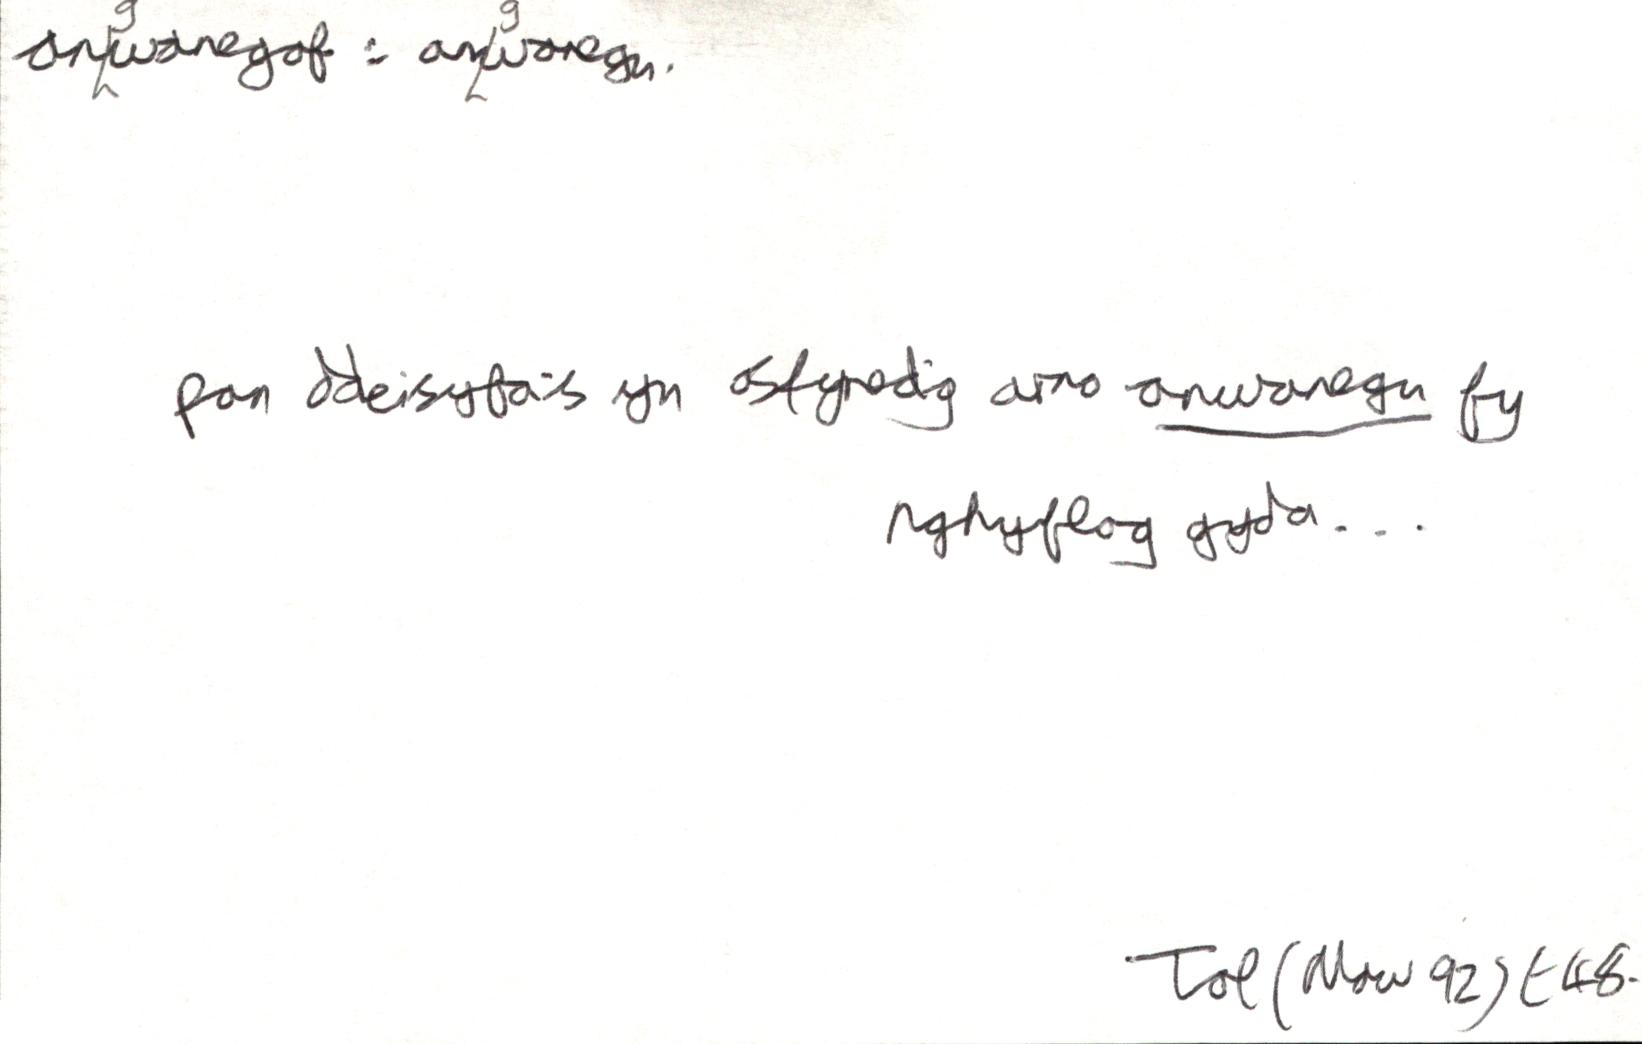 angwanegaf : angwanegu.
pan ddeisyfais yn ostyredig arno anwanegu fy
nghyflog gyda...
Tal (Maw 92) t 48.